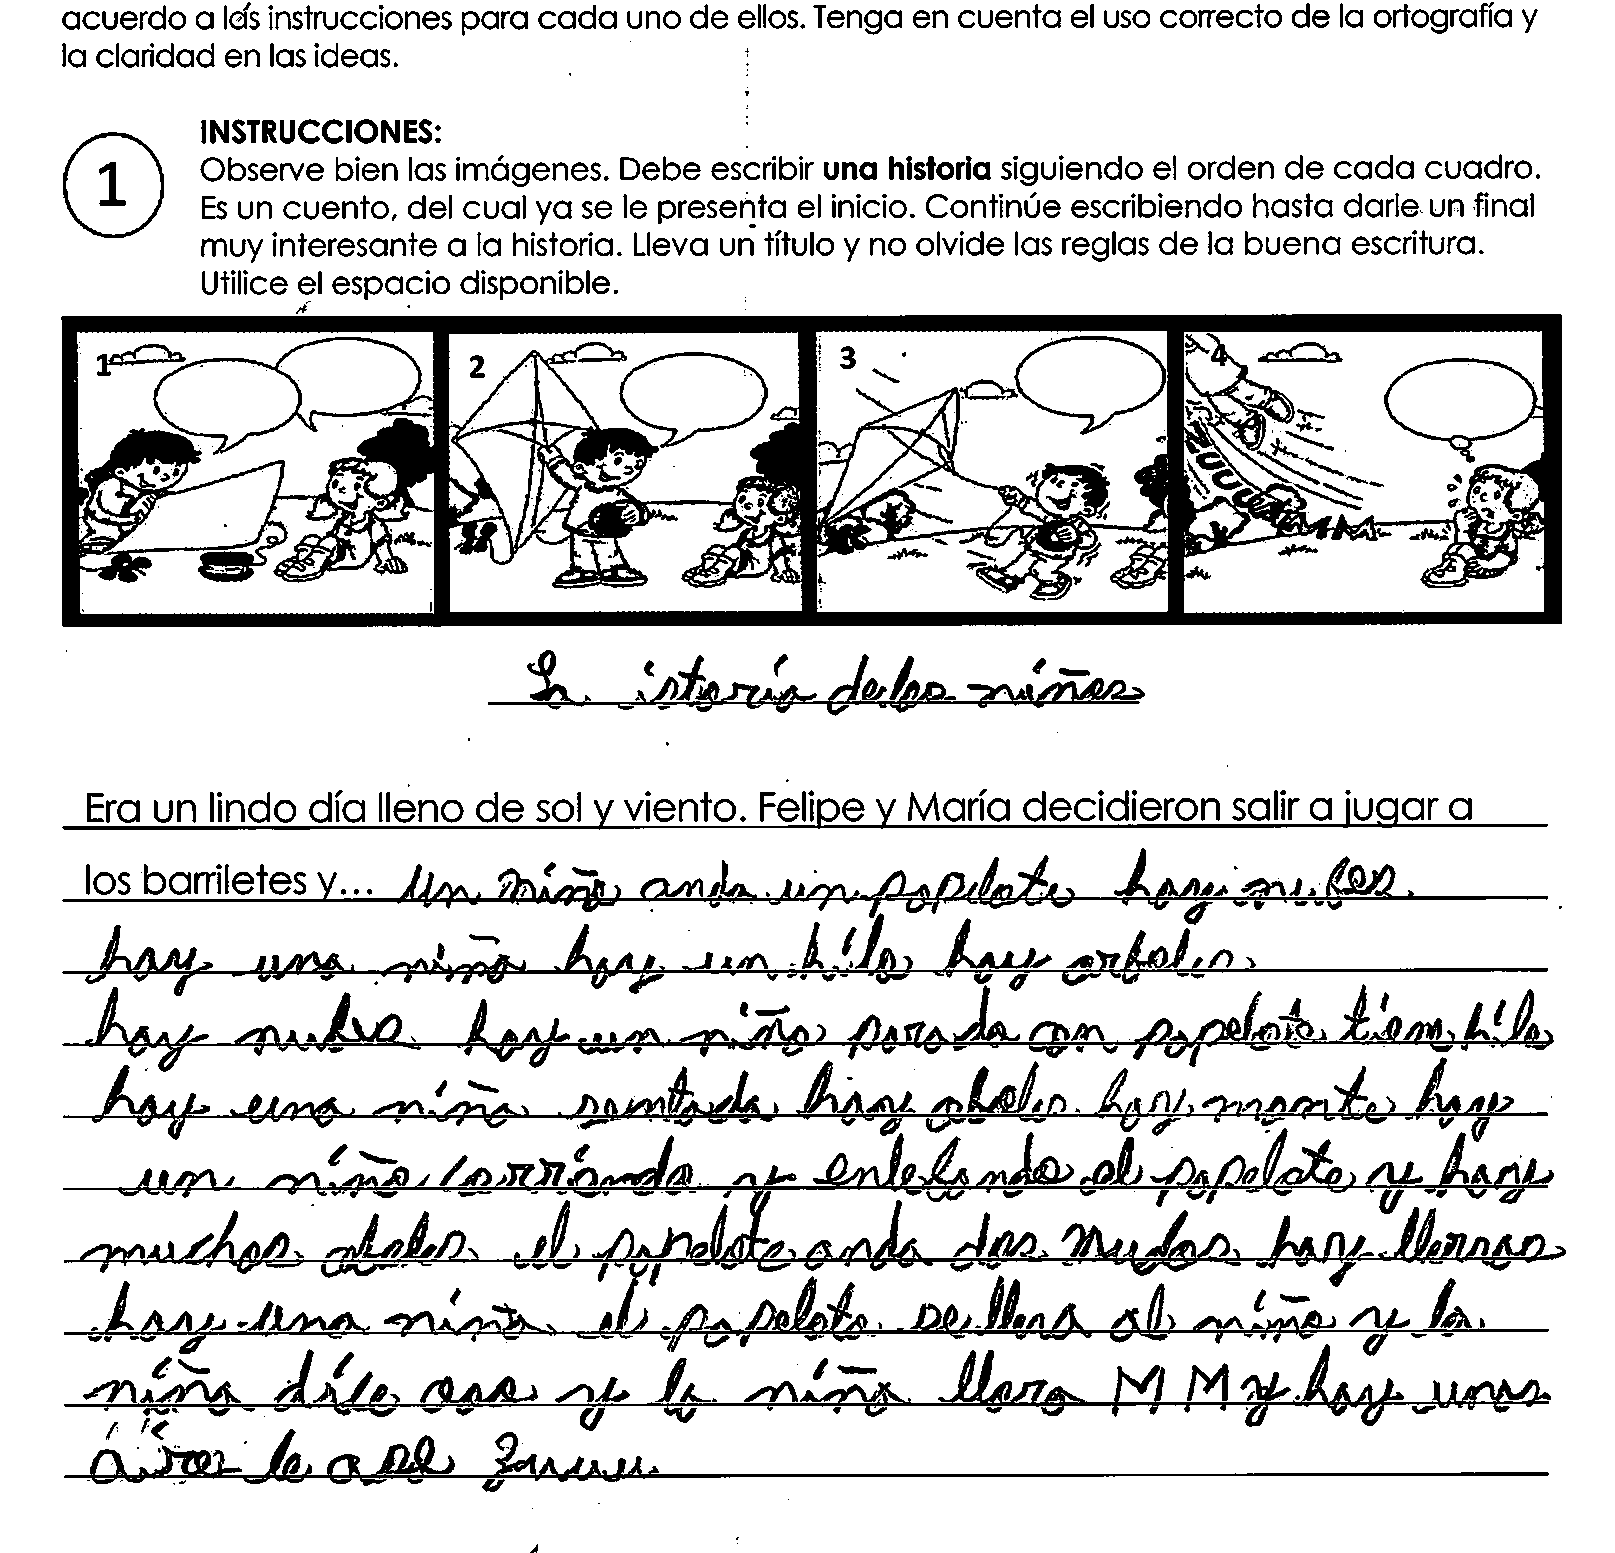 acuerdo a las instrucciones para cada uno de ellos. Tenga en cuenta el uso correcto de la ortografía y
la claridad en las ideas.
INSTRUCCIONES:
1
Observe bien las imágenes. Debe escribir una historia siguiendo el orden de cada cuadro.
Es un cuento, del cual ya se le presenta el inicio. Continúe escribiendo hasta darle un final
muy interesante a la historia. Lleva un título y no olvide las reglas de la buena escritura.
Utilice el espacio disponible.
1 2 3 4
ZUUUUMMM
La istoria de los niños
Era un lindo día lleno de sol y viento. Felipe y María decidieron salir a jugar a
los barriletes y... un niño anda un papelote hay nubes
hay una niña hay un hilo hay arboles
hay nubes hay un niño parado con papelote tiene hilo
hay una niña sentada hay aboles hay monte hay
un niño corriendo y enlebando el papelote y hay
muchos aboles el papelote anda dos nudos hay
hay una niña el papelote se lleva al niño y la
niña dice y la niña llora M M y hay unos
le ase Zuuuu